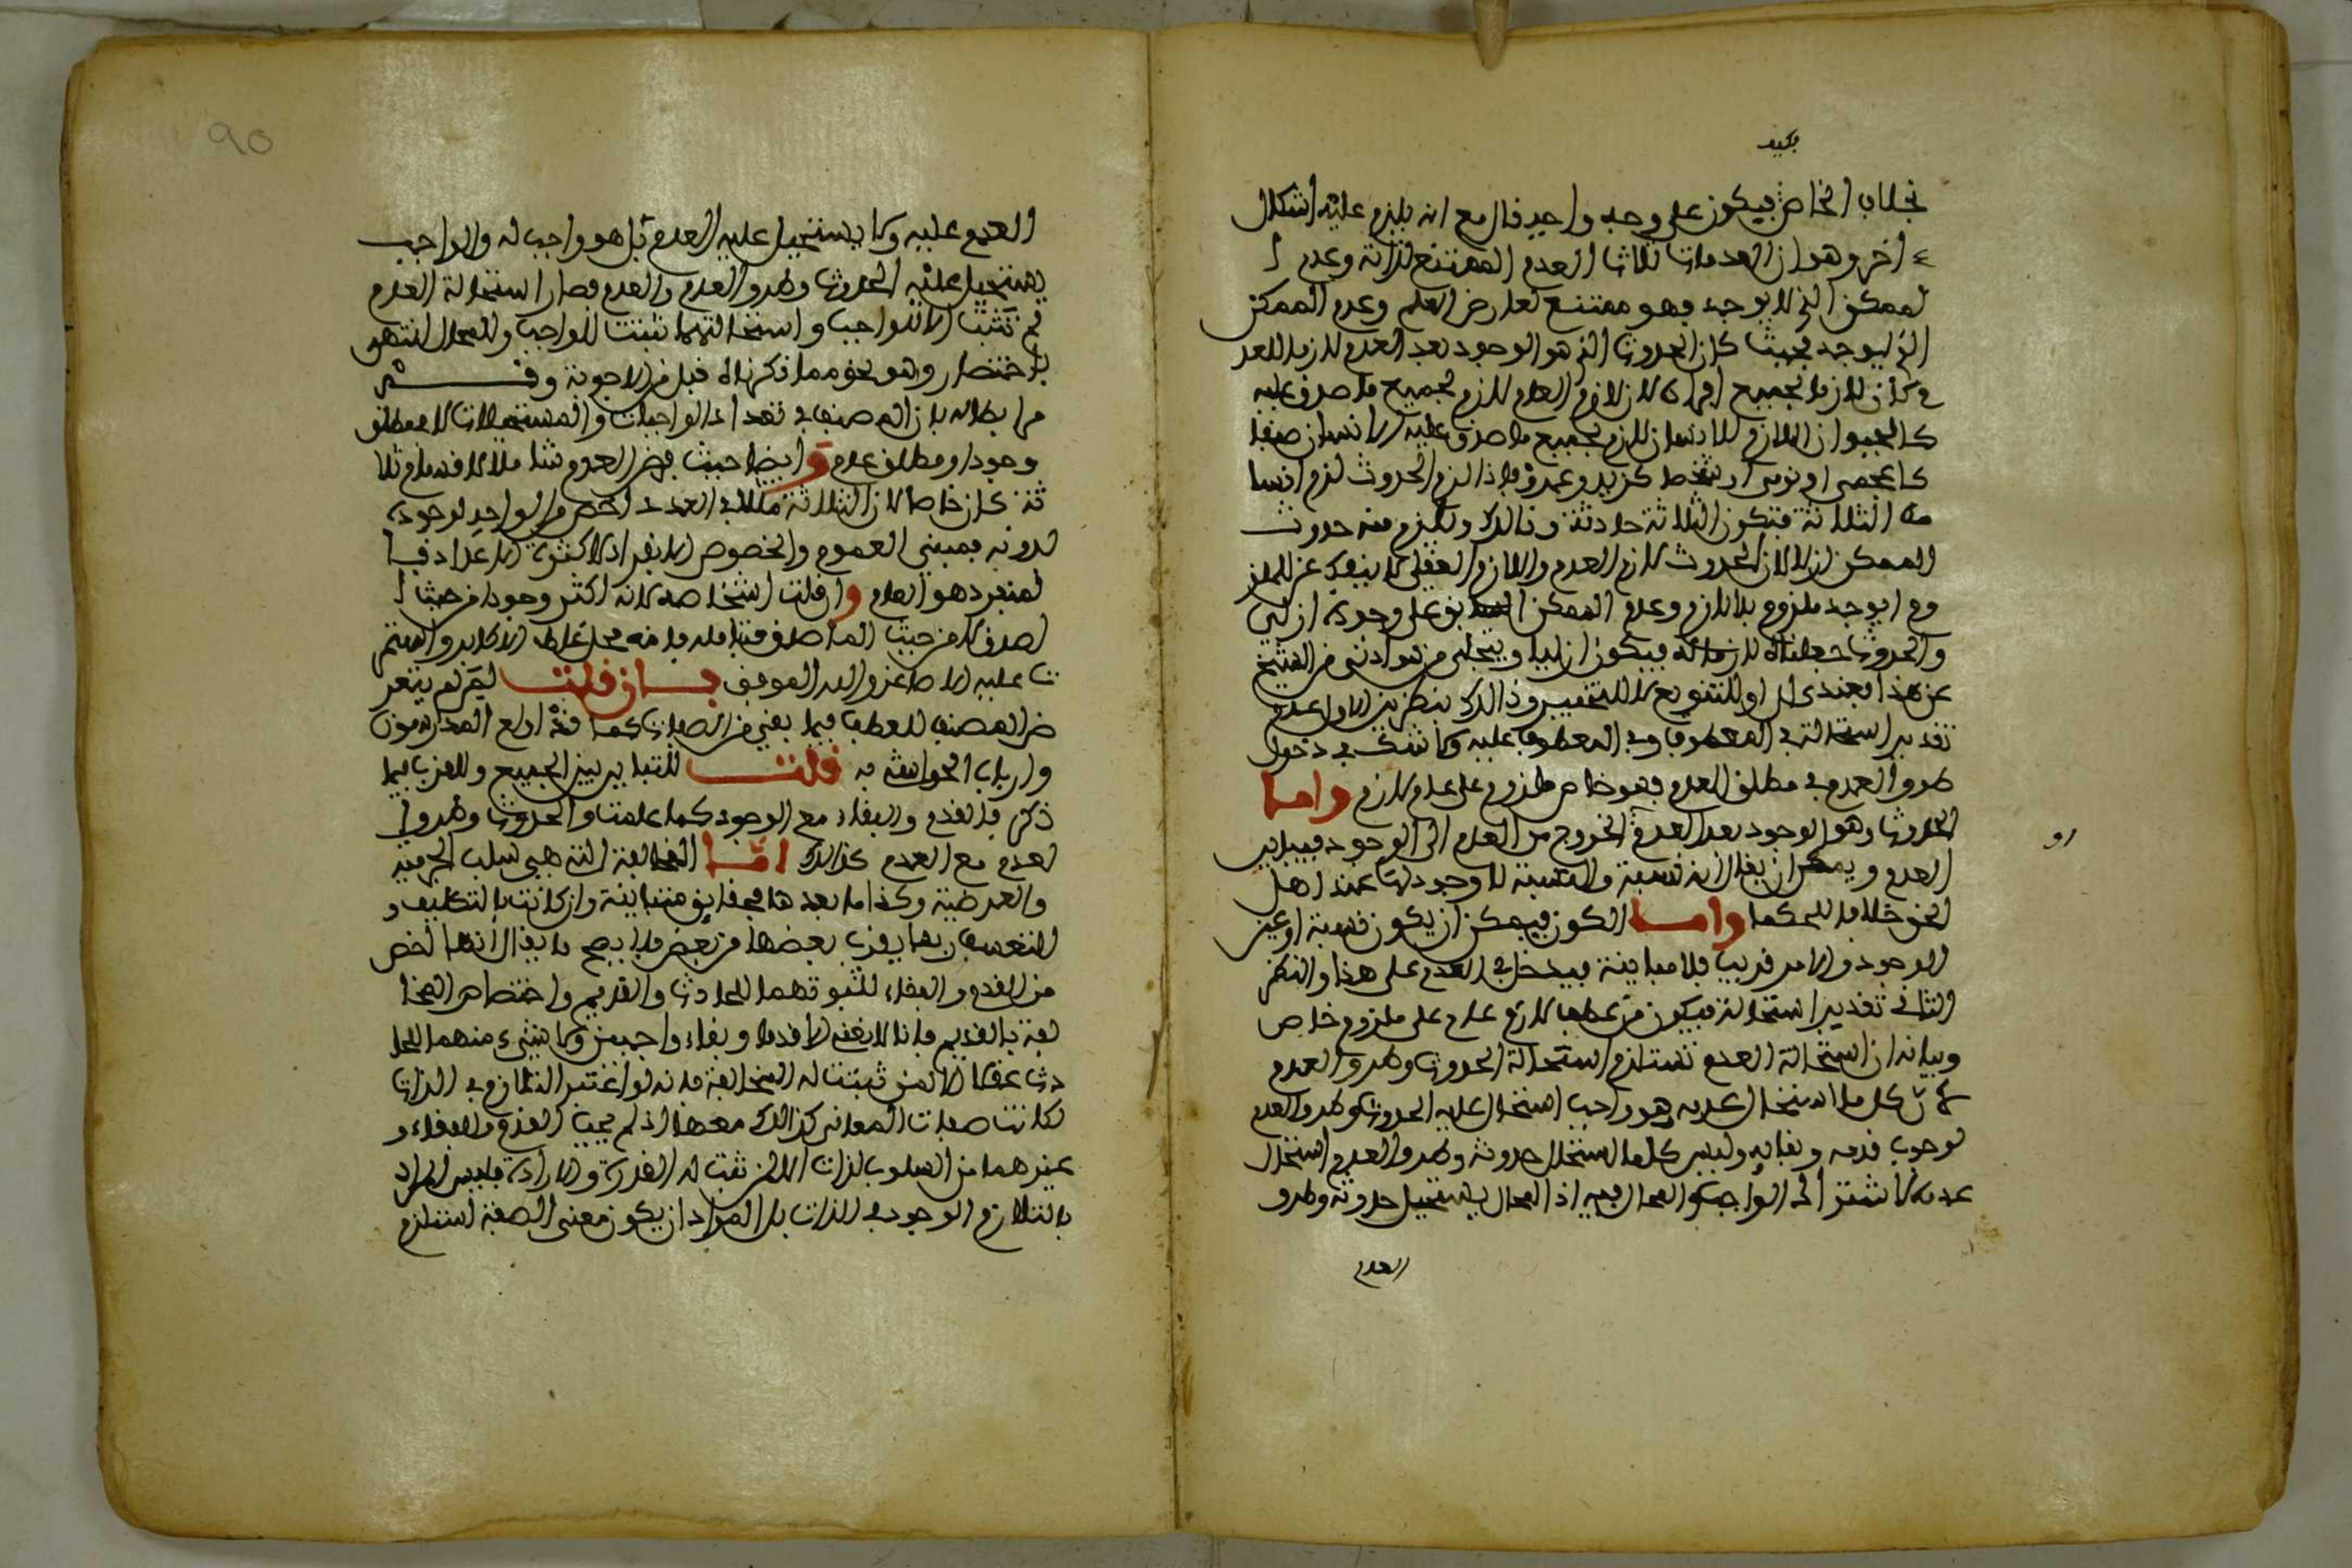 بخلاف الخاص فيكون على وجه واحد قال مع انه يلزم عليه اشكال
اخر وهو ان العدمات ثلاثة العدم الممتنع لذاته وعدم ا
لممكن الذي لا يوجد فهو ممتنع لعارض العلم وعدم الممكن
الذي يوجد فحيث كان الحدوث الذي هو الوجود بعد العدم لازما للعد
م كان لازما لجميع افراده لان لازم العام لازم لجميع ما صدق عليه
كالحيوان اللازم للانسان لازم لجميع ما صدق عليه الانسان صنفا
كاعجمي او تركي او شخصا كزيد وعمرو فاذا لزم الحدوث لزم اقسا
مه الثلاثة فتكون الثلاثة حادثة وكذلك ويلزم منه حدوث
الممكن ازلا لان الحدوث لازم العدم واللازم العقلي لا ينفك عن الملز
وم ايوجد ملزوم بلا لازم وعدم الممكن السابق على وجوده ازلي
والحدوث جعلناه لازما له فيكون ازليا ويتجلى من هو ادنى من الشيخ
عن هذا فعندي ان او للتنويع لا للتخيير وذلك بنظرين الاول عدم
تقدير استحالة في المعطوف وفي المعطوف عليه ولا شك في دخول
طرو العدم في مطلق العدم فهو خاص ملزوم على عام لازم واما
الحدوث وهو الوجود بعد العدم او الخروج من العدم الى الوجود فيباين
العدم ويمكن ان يقال انه نسبة والنسبة لا وجود لها عند اهل
الحق خلافا للحكما واما الكون فيمكن ان يكون نسبة او عين
الوجود والامر قريب فلا مباينة فيدخل في العدم على هذا والنظر
الثاني تقدير استحالة فيكون من عطف لازم عام على ملزوم خاص
وبيانه ان استحالة العدم تستلزم استحالة الحدوث وطرو العدم
لان كل ما استحال عدمه هو واجب استحال عليه الحدوث وطرو العدم
لوجوب قدمه وبقايه وليس كلما استحال حدوثه وطرو العدم استحال
عدمه لاشتراك الواجب والمحال فيه اذ المحال يستحيل حدوثه وطرو
العدم
العدم عليه ولا يستحيل عليه العدم بل هو واجب له والواجب
يستحيل عليه الحدوث وطرو العدم والعدم فصار استحالة العدم
لم تثبت الا للواجب واستحالتهما تثبت للواجب وللمحال انتهى
باختصار وهو نحو مما ذكرناه قبل من الاجوبة
من ابطاله بان المصنف في تعداد الواجبات والمستحيلات لا مطلق
وجود او مطلق عدم وايضا حيث فرض العدم مثلا ثلاثة اقسام
كان خاصا لان الثلاثة مثلا في العدد اخص من الواحد لوجوده
بدونه فمبنى العموم والخصوص الانفراد لا كثرة الاعداد فا
لمنفرد هو العام وان قلت اشخاصه لانه اكثر وجودا من حيث ا
لصدق لا من حيث الماصدق فتامله فانه محل غلط الاكابر
عليه الاصاغر والله الموفق فان قلت لم لم يتعر
ض المصنف للعطف فيما بقي من الصفات كما اولع المدرسون
وارباب الحواشي به قلت للتباين بين الجميع وللقرب فيما
ذكر فالقدم والبقاء مع الوجود كما علمت والحدوث وطرو ا
لعدم مع العدم كذلك اما المخالفة التي هي سلب الجرمية
والعرضية وكذا ما بعدها فحقايق متباينة وان كانت بالتكليف و
التعسف ربما يقرب بعضها من بعض فلا يصح ما يقال انها اخص
من القدم والبقاء لثبوتهما للحادث والقديم واختصاص المخا
لفة بالقديم فانا لا نعني الا قدما وبقاء واجبين ولا شيء منهما للحا
دث عقلا الا لمن ثبتت له المخالفة فانه لو اعتبر التلازم في الذات
لكانت صفات المعاني كذلك معها اذ لم يجب القدم والبقاء و
غيرهما من السلوب لذات الا لمن ثبت له القدرة والارادة فليس المراد
بالتلازم الوجود في الذات بل المراد ان يكون معنى الصفة استلزم